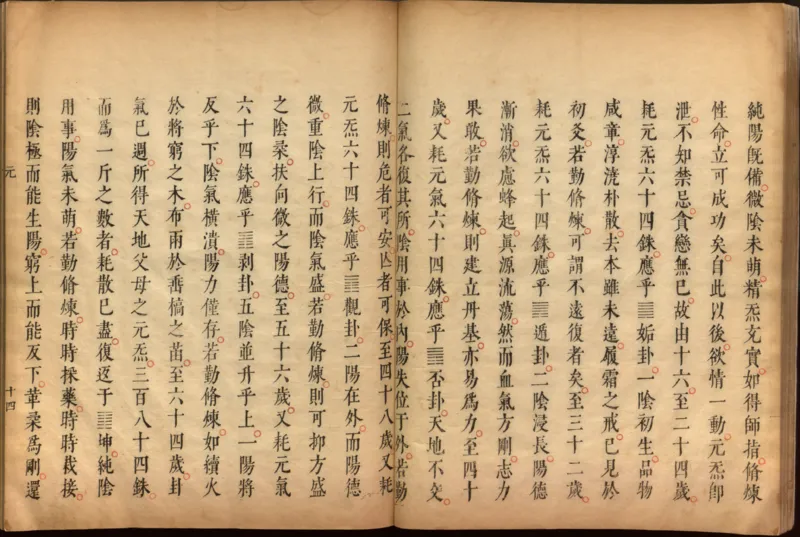 純陽既備微陰未萌精炁充實如得師指修煉
性命立可成功矣自此以後欲情一動元炁卽
泄不知禁忌貪戀無已故由十六至二十四歲
耗元炁六十四銖應乎䷫姤卦一陰初生品物
咸章淳澆朴散去本雖未遠履霜之戒已見於
初爻若勤修煉可謂不遠復者矣至三十二歲
耗元炁六十四銖應乎䷠遁卦二陰浸長陽德
漸消欲慮蜂起眞源流蕩然而血氣方剛志力
果敢若勤修煉則建立丹基亦易爲力至四十
歲又耗元氣六十四銖應乎䷋否卦天地不交
二氣各復其所陰用事於內陽失位于外若勤
修煉則危者可安亾者可保至四十八歲又耗
元炁六十四銖應乎䷓觀卦二陽在外而陽德
微重陰上行而陰氣盛若勤修煉則可抑方盛
之陰柔扶向微之陽德至五十六歲又耗元氣
六十四銖應乎䷖剥卦五陰並升乎上一陽將
反乎下陰氣橫潰陽力僅存若勤修煉如續火
於將窮之木布雨於番槁之苗至六十四歲卦
氣已週所得天地父母之元炁三百八十四銖
而爲一斤之數者耗散已盡復返于䷁坤純陰
用事陽氣未萌若勤修煉時時採藥時時栽接
則陰極而能生陽窮上而能反下革柔爲剛還
元
十四